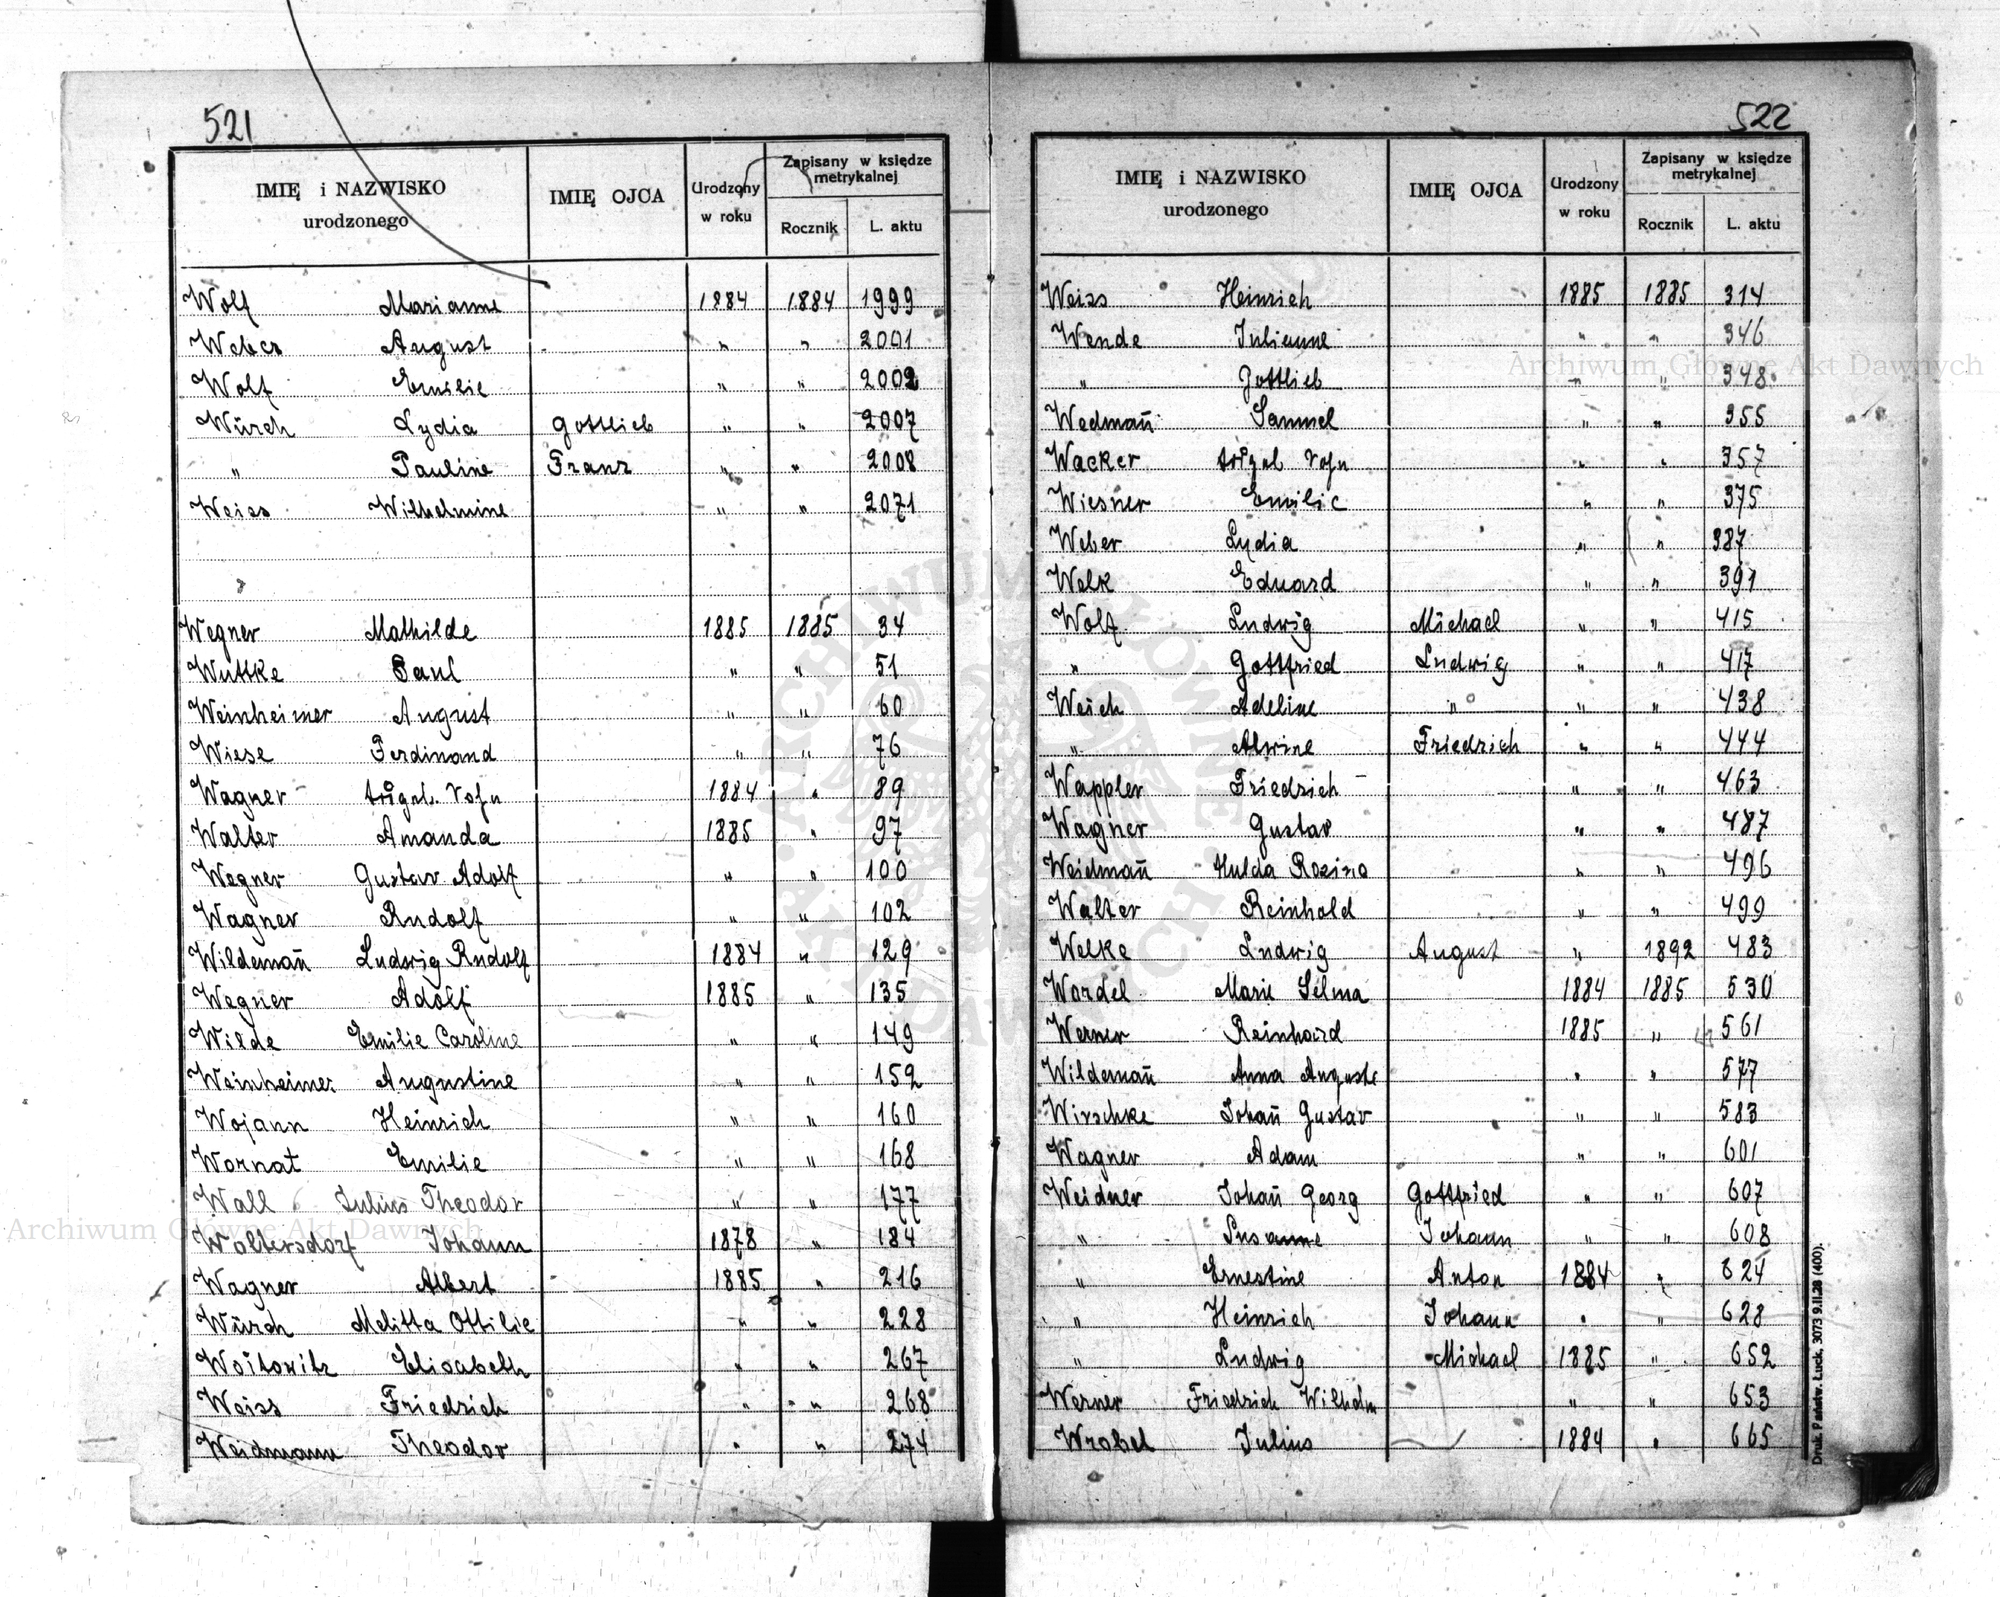 521
IMIĘ i NAZWISKO urodzonego IMIĘ OJCA Urodzony w roku Zapisany w księdze metrykalnej Rocznik L. aktu
Wolf Marianne 1884 1884 1999
Weber August " " 2001
Wolf Emilie " " 2002
Würch Lydia Gottlieb " " 2007
" Pauline Franz " " 2008
Weiss Wilhelmine " " 2071
Wegner Mathilde 1885 1885 34
Wuttke Paul " " 51
Weinheimer August " " 60
Wiese Ferdinand " " 76
Wagner 1884 " 89
Walter Amanda 1885 " 97
Wegner Gustav Adolf " " 100
Wagner Rudolf " " 102
Wildemañ Ludwig Rudolf 1884 " 129
Wegner Adolf 1885 " 135
Wilde Emilie Caroline " " 149
Weinheimer Augustine " " 152
Wojann Heinrich " " 160
Wornat Emilie " " 168
Wall Julius Theodor " " 177
Woltersdorf Johann 1878 " 184
Wagner Albert 1885 " 216
Würch Melitta Ottilie " " 228
Woitowitz Elisabeth " " 267
Weiss Friedrich " " 268
Weidmann Theodor " " 274
522
IMIĘ i NAZWISKO urodzonego IMIĘ OJCA Urodzony w roku Zapisany w księdze metrykalnej Rocznik L. aktu
Weiss Heinrich 1885 1885 314
Wende Julianne " " 346
" Gottlieb " " 348
Wedmañ Samuel " " 355
Wacker " " 357
Wiesner Emilie " " 375
Weber Lydia " " 387
Welk Eduard " " 391
Wolf Ludwig Michael " " 415
" Gottfried Ludwig " " 417
Weich Adeline " " " 438
" Alwine Friedrich " " 444
Wappler Friedrich " " 463
Wagner Gustav " " 487
Weidmañ Hulda Rozina " " 496
Walter Reinhold " " 499
Welke Ludwig August " 1892 483
Wordel Marie Selma 1884 1885 530
Werner Reinhard 1885 " 561
Wildemañ Anna Auguste " " 577
Wirschke Johañ Gustav " " 583
Wagner Adam " " 601
Weidner Johañ Georg Gottfried " " 607
" Susanne Johann " " 608
" Ernestine Anton 1884 " 624
" Heinrich Johann " " 628
" Ludwig Michael 1885 " 652
Werner Friedrich Wilhelm " " 653
Wrobel Julius 1884 " 665
Druk. Państw. Łuck, 3073 9.II.28 (400).
Archiwum Główne Akt Dawnych
Archiwum Główne Akt Dawnych
ARCHIWUM GŁÓWNE AKT DAWNYCH